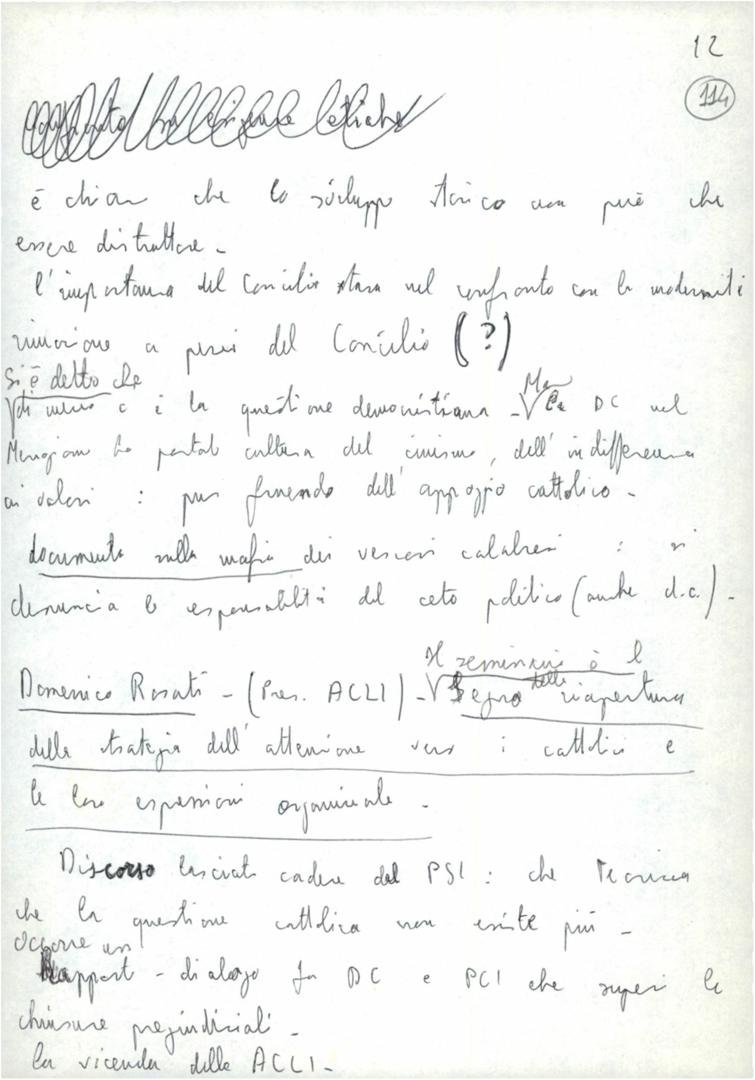 12
114
è chiaro che lo sviluppo storico non può che
essere distruttore -
l'importanza del Concilio stava nel confronto con la modernità
rimozione a pezzi del Concilio (?)
Si è detto che
c'è la questione democristiana - Ma la DC nel
Mezzogiorno ha portato cultura del cinismo, dell'indifferenza
ai valori : pur fruendo dell'appoggio cattolico -
documento sulla mafia dei vescovi calabresi : si
denuncia la responsabilità del ceto politico (anche d.c.) -
Il seminario è il
Domenico Rosati - (Pres. ACLI) - segno della riapertura
della strategia dell'attenzione verso i cattolici e
le loro espressioni organizzate -
Discorso lasciato cadere dal PSI : che teorizza
che la questione cattolica non esiste più -
occorre un
Rapporto - dialogo fra DC e PCI che superi le
chiusure pregiudiziali -
la vicenda delle ACLI -